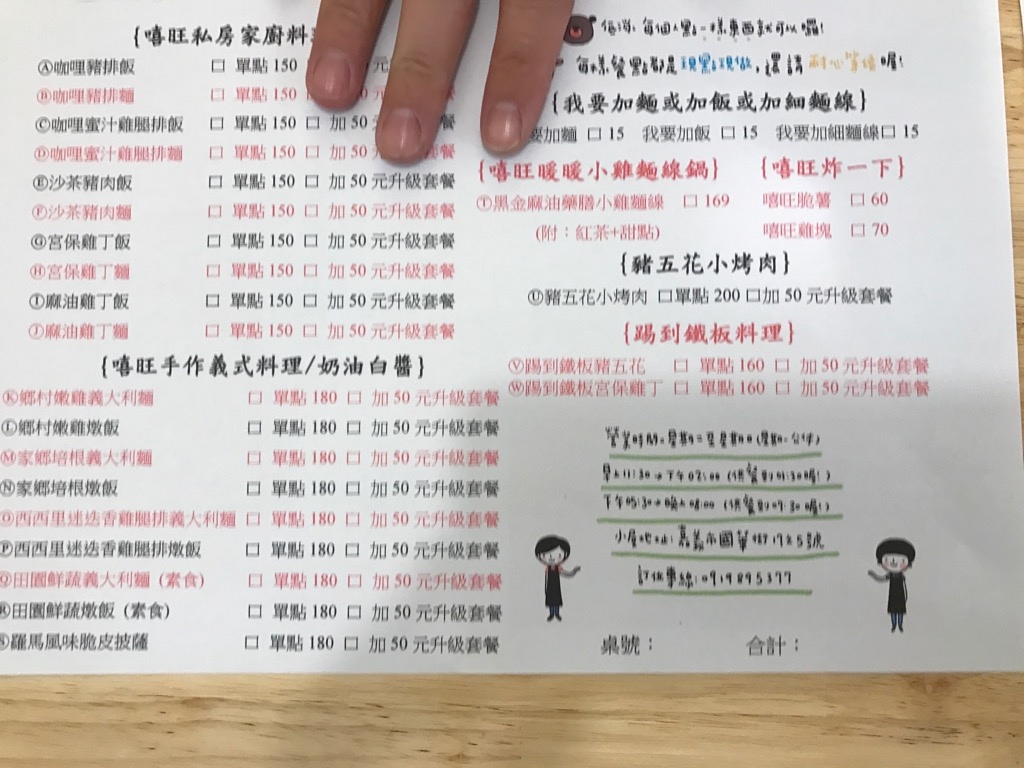 {嘻旺私房家廚料
Ⓐ咖哩豬排飯 口 單點150 元
Ⓑ咖哩豬排麵 口 單點150
Ⓒ咖哩蜜汁雞腿排飯 口 單點150 口 加50 餐
Ⓓ咖哩蜜汁雞腿排麵 口 單點150 口 加50 套餐
Ⓔ沙茶豬肉飯 口 單點150 口 加50元升級套餐
Ⓕ沙茶豬肉麵 口 單點150 口 加50元升級套餐
Ⓖ宮保雞丁飯 口 單點150 口 加50元升級套餐
Ⓗ宮保雞丁麵 口 單點150 口 加50元升級套餐
Ⓘ麻油雞丁飯 口 單點150 口 加50元升級套餐
Ⓙ麻油雞丁麵 口 單點150 口 加50元升級套餐
{嘻旺手作義式料理/奶油白醬}
Ⓚ鄉村嫩雞義大利麵 口 單點180 口 加50元升級套餐
Ⓛ鄉村嫩雞燉飯 口 單點180 口 加50元升級套餐
Ⓜ家鄉培根義大利麵 口 單點180 口 加50元升級套餐
Ⓝ家鄉培根燉飯 口 單點180 口 加50元升級套餐
Ⓞ西西里迷迭香雞腿排義大利麵 口 單點180 口 加50元升級套餐
Ⓟ西西里迷迭香雞腿排燉飯 口 單點180 口 加50元升級套餐
Ⓠ田園鮮蔬義大利麵(素食) 口 單點180 口 加50元升級套餐
Ⓡ田園鮮蔬燉飯(素食) 口 單點180 口 加50元升級套餐
Ⓢ羅馬風味脆皮披薩 口 單點180 口 加50元升級套餐
低消:每個人點一樣東西就可以囉!
每樣餐點都是現點現做,還請耐心等待喔!
{我要加麵或加飯或加細麵線}
要加麵 口15 我要加飯 口15 我要加細麵線口15
{嘻旺暖暖小雞麵線鍋}
Ⓣ黑金麻油藥膳小雞麵線 口169
(附:紅茶+甜點)
{嘻旺炸一下}
嘻旺脆薯 口60
嘻旺雞塊 口70
{豬五花小烤肉}
Ⓤ豬五花小烤肉 口單點200口加50元升級套餐
{踢到鐵板料理}
Ⓥ踢到鐵板豬五花 口 單點160 口 加50元升級套餐
Ⓦ踢到鐵板宮保雞丁 口 單點160 口 加50元升級套餐
營業時間:星期二至星期日(星期一公休)
早上11:30→下午02:00(供餐到01:30喔!)
下午05:30→晚上08:00(供餐到07:30喔!)
小屋地址:嘉義市國華街175號
訂位專線:0919895377
桌號: 合計: